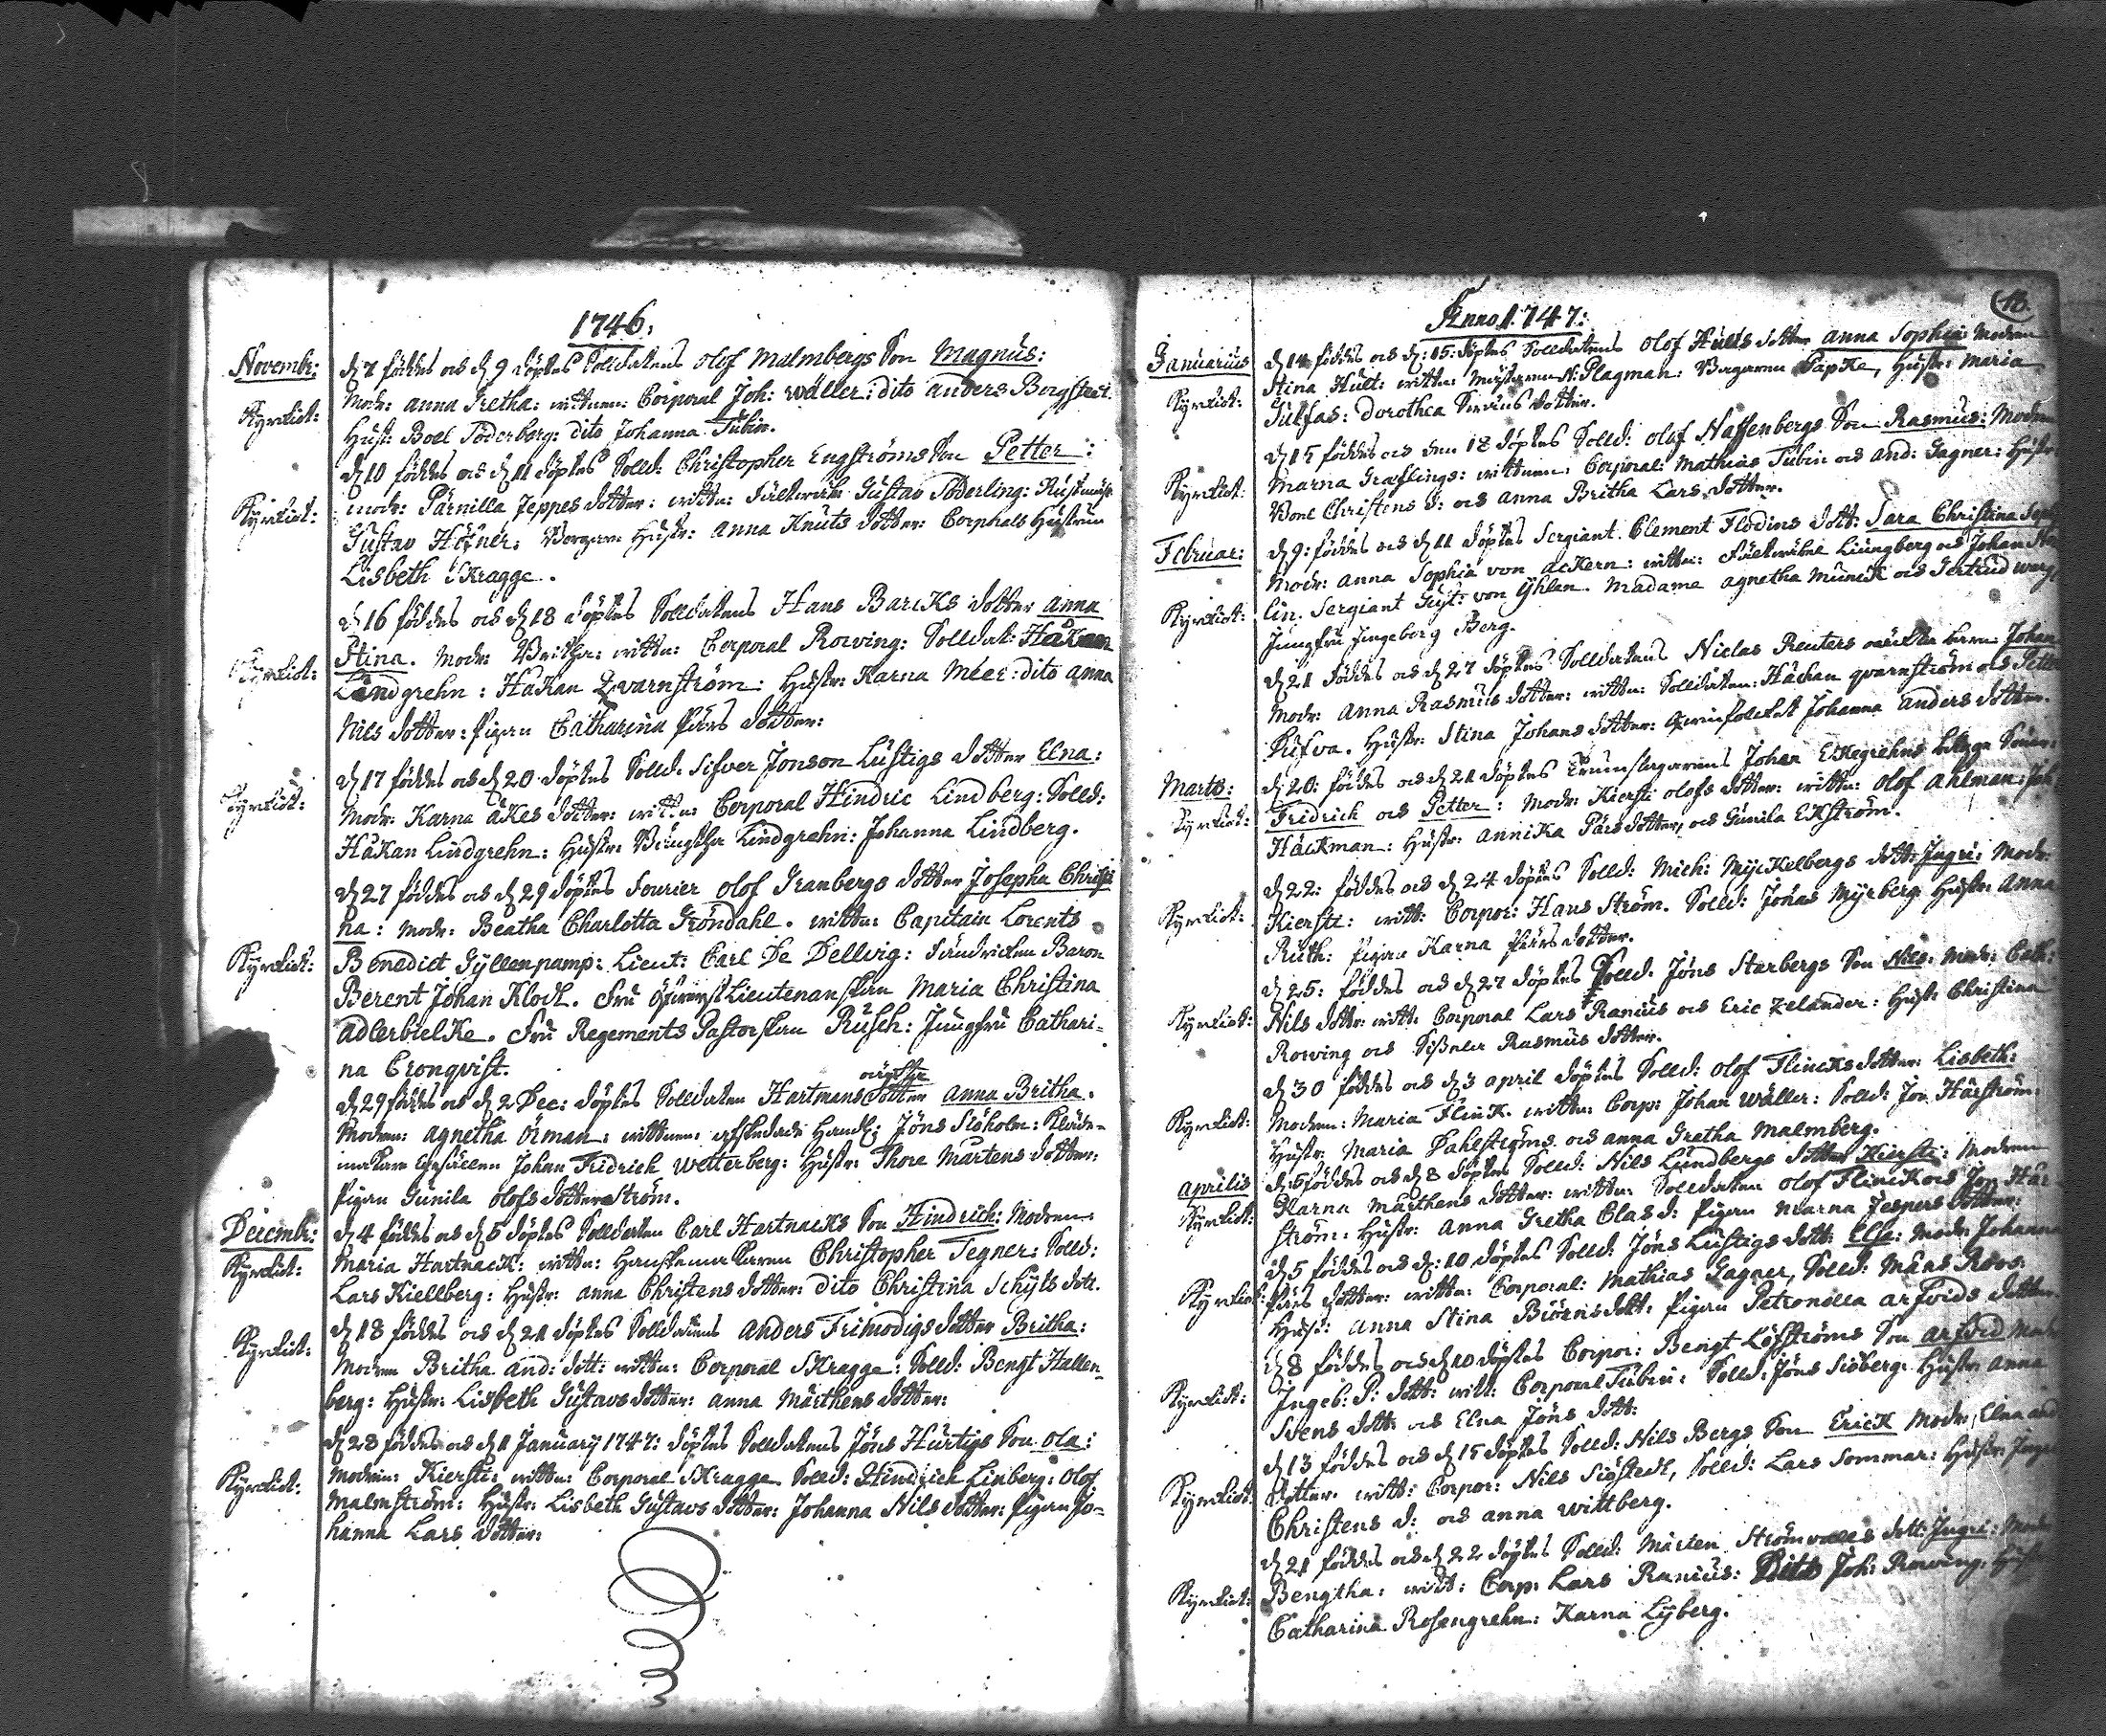 1746.
Novembr:
d 7 föddes och d 9 döptes Solldatens Olof Malmbergs Son Magnus:
Kyrckiot:
Modr: Anna Gretha: wittnen: Corporal Joh: Wäller: dito Anders Borgstrӧt.
Hust: Boel Söderberg: dito Johanna Tubin.
d 10 föddes och d 11 döptes Solld: Christopher Engströms Son Petter:
Kyrckiot:
modr: Pärnilla Jeppes dotter: wittn: Gustav Söderling:
Gustav Höfner: Hustr: Anna Knuts dotter: Corporals Hustrun
Lisbeth Skragge.
d 16 föddes och d 18 döptes Solldatens Hans Barcks dotter Anna
Kyrckiot:
Stina. Modr: Britha: wittn: Corporal Rowing: Solldat: Håkan
Lindgrehn: Håkan Qvarnström: Hustr: Karna Meer: dito Anna
Nils dotter: Pigan Catharina Pärs dotter:
d 17 föddes och d 20 döptes Solld. Sifver Jonson Lustigs dotter Elna:
Kyrckiot:
Modr: Karna Åkes dotter: wittn: Corporal Hindric Lindberg: Solld:
Håkan Lindgrehn: Hustr: Bengtha Lindgrehn: Johanna Lindberg.
d 27 föddes och d 29 döptes Fourier Olof Granbergs dotter Josepha Christi
na: Modr: Beatha Charlotta Gröndahl. wittn: Capitain Lorents
Kyrckiot:
Benedict Gyllenpamp: Lieut: Carl De Dellvig: Fendricken Baron
Berent Johan Klodt. Fru Öfwerst Lieutenanskan Maria Christina
Adlerbielke. Fru Regements Pastorskan Rusch: Jungfru Cathari-
na Cronqvist.
d 29 föddes och d 2 Dec: döptes Solldaten Hartmans oäckta dotter Anna Britha.
Modren: Agnetha Örman: wittnen: afskedade Jöns Siöholm:
Johan Fridrich Wetterberg: Hustr: Thora Mårtens dotter:
Pigan Gunila Olofs dotter Ström.
Decembr:
d 4 föddes och d 5 döptes Solldaten Carl Hartnacks Son Hindrich: Modren:
Kyrckiot:
Maria Hartnack: wittn: Christopher Tegner: Solld:
Lars Kiellberg: Hustr: Anna Christens dotter: dito Christina Schyls dotr.
d 18 föddes och d 21 döptes Solldatens Anders Frimodigs dotter Britha:
Kyrckiot:
Modren Britha And: dott: wittn: Corporal Skragge: Solld: Bengt Hallen-
berg: Hustr: Lisbeth Gustavs dotter: Anna Mårthens dotter:
d 28 föddes och d 1 January 1747: döptes Solldatens Jöns Hurtigs Son Ola:
Kyrckiot:
Modren: Kiersti: wittn: Corporal Skragge Solld: Hindrich Linberg: Olof
Malmström: Hustr: Lisbeth Gustavs dotter: Johanna Nils dotter: Pigan Jo-
hanna Lars dotter:
Anno 1747:
Januarius
d 14 föddes och d: 15: döptes Solldatens Olof Hults dotter Anna Sophia: Modren
Kyrckiot:
Stina Hult: wittn: N: Plagman: Papke, Hustr: Maria
Dorothea dotter.
d 15 föddes och den 18 döptes Solld: Olof Hassenbergs Son Rasmus: Modren
Kyrckiot:
Marna Graflings: wittnen: Corporal: Mathias Tubin och And: Gagner: Hustr
Bone Christens d: och Anna Britha Lars dotter.
Februar:
d 9: föddes och d 11 döptes Sergiant. Clement Flodins dott: Sara Christina
Modr: Anna Sophia von Ackern: wittn: Liungberg och Johan
Kyrckiot:
lin. Sergiant von Yhlen. Madame Agnetha Munck och Gertrud
Jungfru Ingeborg Berg.
d 21 föddes och d 27 döptes Solldatens Niclas Reuters oäckta barn Johan
Modr: Anna Rasmus dotter: wittn: Solldaten: Håckan Qvarnström och Petter
Hustr: Stina Johans dotter: Johanna Anders dotter.
Martii:
d 20: föddes och d 21 döptes Trumslagarens Johan Ekegrehns begge Söner:
Kyrckiot:
Fridrich och Petter: Modr: Kiersti Olofs dotter: wittn: Olof Ahlman: Joh
Häckman: Hustr: Annika Pärs dotter, och Gunila Ekström.
d 22: föddes och d 24 döptes Solld: Mich: Myckelbergs dott: Ingri: Modr:
Kyrckiot:
Kiersti: witt: Corpor: Hans Ström. Solld: Jonas Myrberg Hustr: Anna
Ruth: Pigan Karna Pärs dotter.
d 25: föddes och d 27 döptes Solld: Jöns Starbergs Son Nils: Modr: Cath:
Kyrckiot:
Nils dottr: witt: Corporal Lars Ranius och Eric Zelander: Hustr: Christina
Rowing och Rasmus dotter.
d 30 föddes och d 3 April döptes Solld: Olof Flincks dotter: Lisbeth:
Kyrckiot:
Modren: Maria Flinck. wittn: Corp: Johan Wäller: Solld: Jon Hårström:
Hustr: Maria Dahlströms och Anna Gretha Malmberg.
Aprilis
d 5 föddes och d 8 döptes Solld: Nils Lundbergs dotter Kiersti: Modren
Kyrckiot:
Karna Mårthens dotter: wittn: Solldaten Olof Flinck och Jon Hår-
ström: Hustr: Anna Gretha Clas d: Pigan Marna Jespers dotter:
d 5 föddes och d: 10 döptes Solld: Jöns Lustigs dott: Elsa: Modr: Johanna
Kyrckiot:
Pärs dotter: wittn: Corporal: Mathias Gagner, Solld: Måns Roos.
Hustr: Anna Stina Biörns dott: Pigan Petronella Arfvids dotter.
d 8 föddes och d 10 döptes Corpor: Bengt Löfströms Son Arfvid Modr
Kyrckiot:
Ingeb: P: dott: witt: Corporal Tubin: Solld: Jöns Siöberg: Hustr: Anna
Svens dott: och Elna Jöns dott:
d 13 föddes och d 15 döptes Solld: Nils Bergs Son Erick Modr: Elna And
Kyrckiot:
dotter. witt: Corpor: Nils Siöstedt, Solld: Lars Sommar: Hustr: Inge
Christens d: och Anna Wittberg.
d 21 föddes och d 22 döptes Solld: Mårten Strömvalls dott: Ingri: Modr
Kyrckiot:
Bengtha: witt: Corp: Lars Ranius: Dito Joh: Rowing: Hustr
Catharina Rosengrehn: Karna Lyberg.